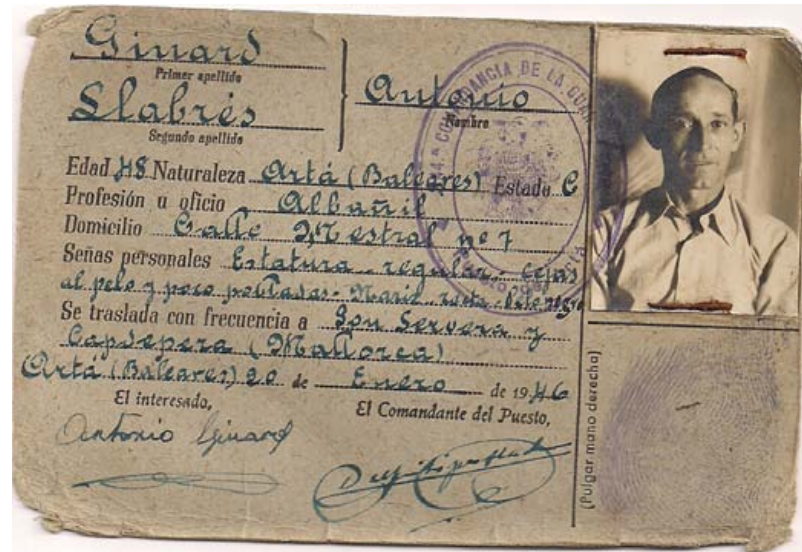 Ginard
Primer apellido
Llabrés
Segundo apellido
Antonio
Nombre
Edad 48 Naturaleza Artá (Baleares) Estado C
Profesión u oficio Albañil
Domicilio Calle Mestral nº 7
Señas personales Estatura regular - Cejas
al pelo y poco pobladas - Nariz recta - Pelo negro
Se traslada con frecuencia a Son Servera y
Capdepera (Mallorca)
Artá (Baleares) 20 de Enero de 1946
El interesado,
El Comandante del Puesto,
Antonio Ginard
COMANDANCIA DE LA
(Pulgar mano derecha)